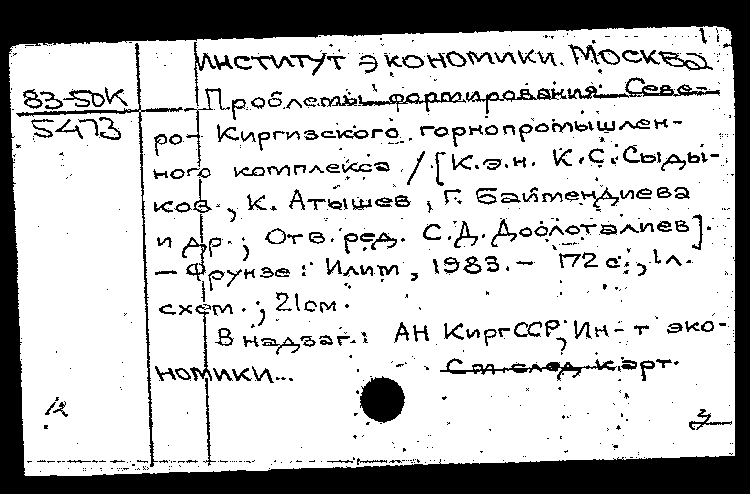 Институт экономики. Москва
83-50К
Проблемы формирования Севе-
5473
ро-Киргизского горнопромышлен-
ного комплекса / [К.э.н. К.С. Сыды-
ков, К. Атышев, Г. Байтмендиева
и др.; Отв. ред. С.Д. Доолоталиев].
— Фрунзе: Илим, 1983. – 172 с., 1 л.
схем.; 21 см.
В надзаг.: АН КиргССР, Ин-т эко-
номики...
См. след. карт.
12